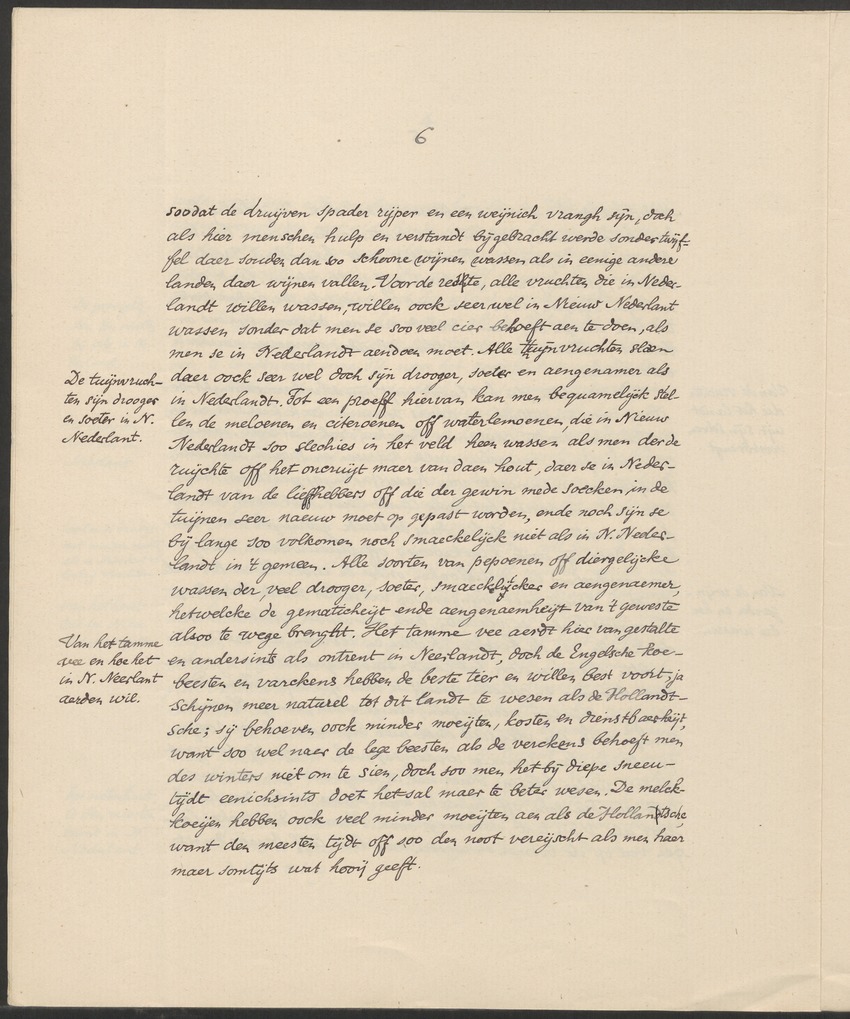 6
soodat de druijven spader rijper en een weijnich vrangh sijn, doch
als hier menschen hulp en verstandt bijgebracht werde sonder twijf-
fel daer souden dan soo schoone wijnen wassen als in eenige andere
landen daer wijnen vallen. Voor de rechte, alle vruchten die in Neder-
landt willen wassen, willen oock seer wel in Nieuw Nederlant
wassen sonder dat men se soo veel cier behoeft aen te doen, als
men se in Nederlandt aendoen moet. Alle tuijnvruchten slaen
daer oock seer wel doch sijn drooger, soeter en aengenamer als
in Nederlandt. Tot een proeff hiervan kan men bequamelijck stel-
len de meloenen en citeroenen off waterlemoenen, die in Nieuw
Nederlandt soo slechies in het veld heen wassen als men der de
ruijchte off het oncruijt maer van daen hout, daer se in Neder-
landt van de lieffhebbers off die der gewin mede soecken, in de
tuijnen seer naeuw moet op gepast worden, ende noch sijn se
bij lange soo volkomen noch smaeckelijck niet als in N. Neder-
landt in 't gemeen. Alle soorten van pepoenen off diergelijcke
wassen der, veel drooger, soeter, smaecklijcker en aengenaemer,
hetwelcke de gematicheijt ende aengenaemheijt van 't geweste
alsoo te wege brenght. Het tamme vee aerdt hier van gestalte
en andersints als ontrent in Neerlandt, doch de Engelsche koe-
beesten en varckens hebben de beste tier en willen best voort, ja
schijnen meer naturel tot dit landt te wesen als de Hollandt-
sche; sij behoeven oock minder moeijten, kosten en dienstbaerheijt,
want soo wel naer de lege beesten als de verckens behoeft men
des winters niet om te sien, doch soo men het bij diepe sneeu-
tijdt eenichsints doet het sal maer te beter wesen. De melck-
koeijen hebben oock veel minder moeijten aen als de Hollantsche,
want den meesten tijdt off soo den noot vereijscht als men haer
maer somtijts wat hooij geeft.
De tuijnvruch-
ten sijn drooger
en soeter in N.
Nederlant.
Van het tamme
vee en hoe het
in N. Neerlant
aerden wil.